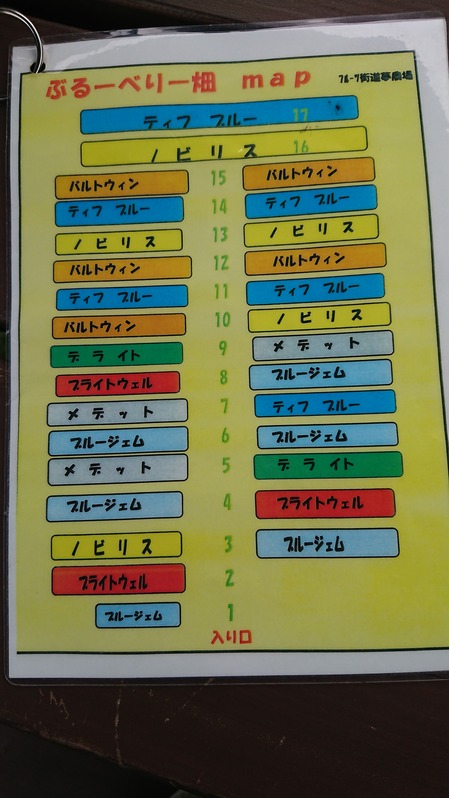 ぶるーべりー畑 map フルーツ街道夢農場
ティフ ブルー 17
ノビリス 16
バルトウィン 15 バルトウィン
ティフ ブルー 14 ティフ ブルー
ノビリス 13 ノビリス
バルトウィン 12 バルトウィン
ティフ ブルー 11 ティフ ブルー
バルトウィン 10 ノビリス
デライト 9 メデット
ブライトウェル 8 ブルージェム
メデット 7 ティフ ブルー
ブルージェム 6 ブルージェム
メデット 5 デライト
ブルージェム 4 ブライトウェル
ノビリス 3 ブルージェム
ブライトウェル 2
ブルージェム 1
入り口